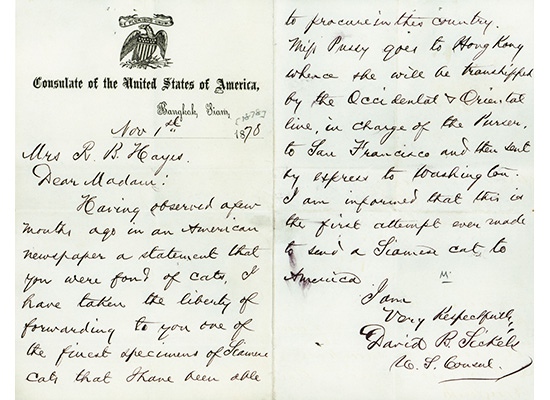 E PLURIBUS UNUM
Consulate of the United States of America,
Bangkok, Siam,
Nov 1st 1878
[1878]
Mrs R. B. Hayes.
Dear Madam:
Having observed a few
months ago in an American
newspaper a statement that
you were fond of cats, I
have taken the liberty of
forwarding to you one of
the finest specimens of Siamese
cats that I have been able
to procure in this country.
Miss Pussy goes to Hong Kong
whence she will be transhipped
by the Occidental & Oriental
line, in charge of the Purser,
to San Francisco and then sent
by express to Washington.
I am informed that this is
the first attempt ever made
to send a Siamese cat to
America
M.
I am
Very Respectfully,
David B. Sickels
U. S. Consul.